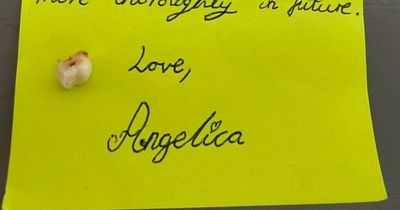 more thoroughly in future.
Love,
Angelica